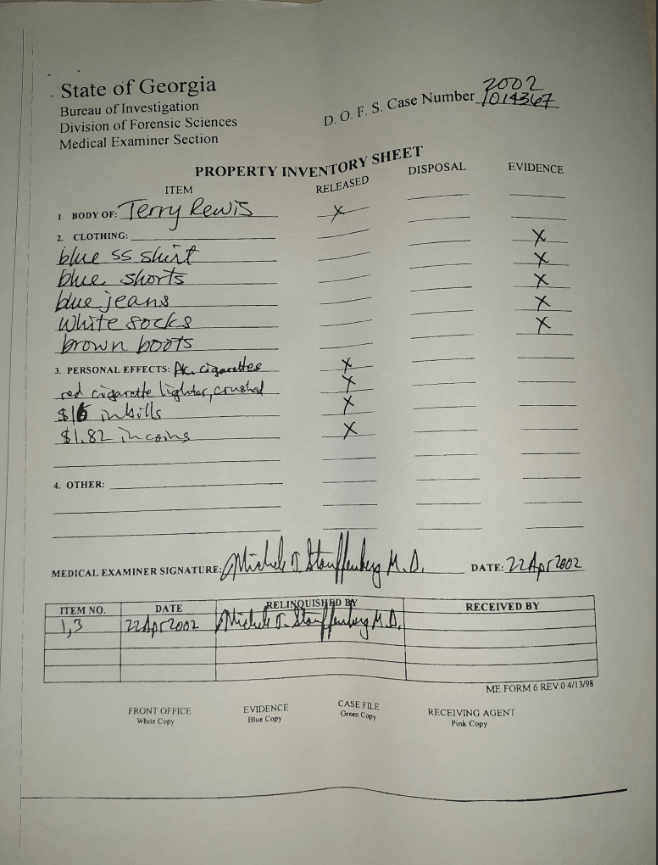 State of Georgia
Bureau of Investigation
Division of Forensic Sciences
Medical Examiner Section
D. O. F. S. Case Number 2002
1014367
PROPERTY INVENTORY SHEET
ITEM RELEASED DISPOSAL EVIDENCE
1 BODY OF: Terry Lewis X
2. CLOTHING: X
blue ss shirt X
blue shorts X
blue jeans X
white socks X
brown boots
3. PERSONAL EFFECTS: Pk. cigarettes X
red cigarette lighter, crushed X
$16 in bills X
$1.82 in coins X
4. OTHER:
MEDICAL EXAMINER SIGNATURE: Michele J. Stauffenberg M.D. DATE: 22Apr2002
ITEM NO. DATE RELINQUISHED BY RECEIVED BY
1,3 22Apr2002 Michele J. Stauffenberg M.D.
ME FORM 6 REV 0 4/13/98
FRONT OFFICE EVIDENCE CASE FILE RECEIVING AGENT
White Copy Blue Copy Green Copy Pink Copy